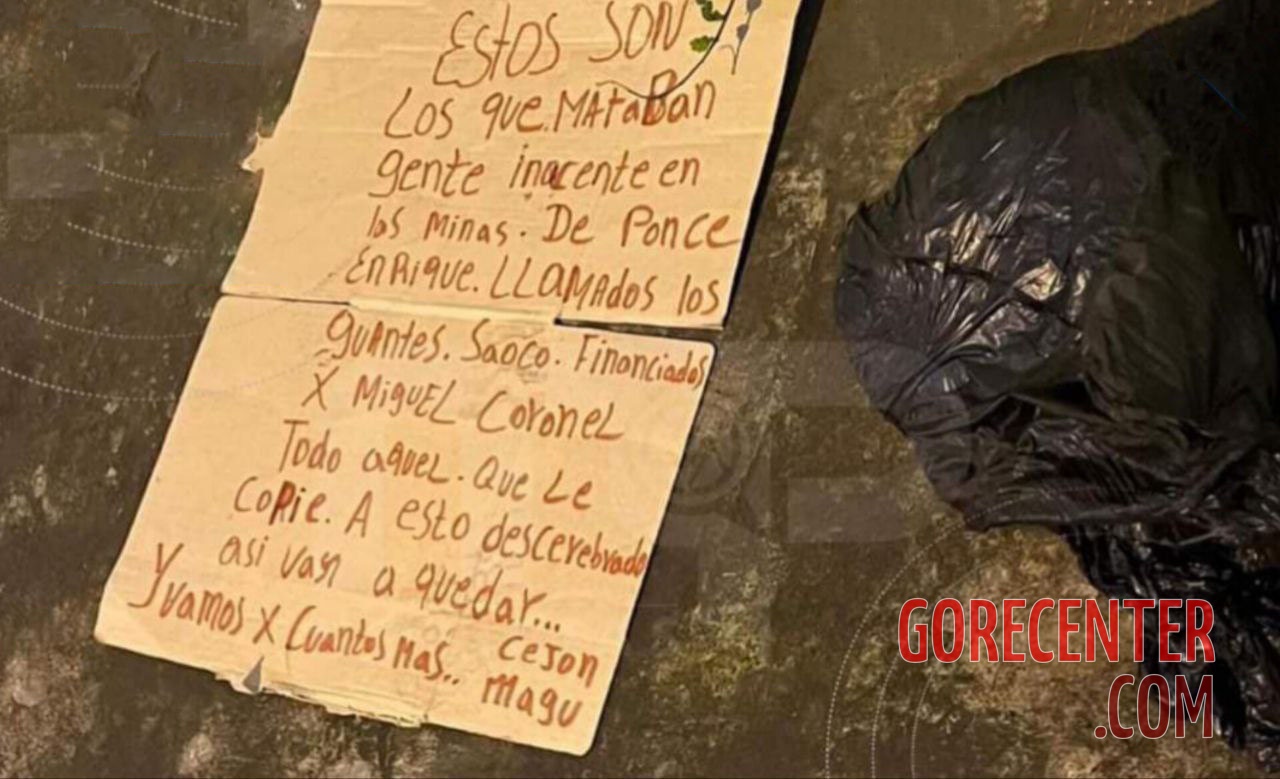 EStOS SON
Los que.MAtaBan
gente inocente en
las minas. De Ponce
EnRique. LLaMAdos los
guAntes. Saoco. Financiados
X MiguEL CoroneL
Todo aqueL. Que Le
CoPie. A esto descerebrado
asi van a quedar...
Y vamos X Cuantos Mas..
CeJon
Magu
GORECENTER
.COM